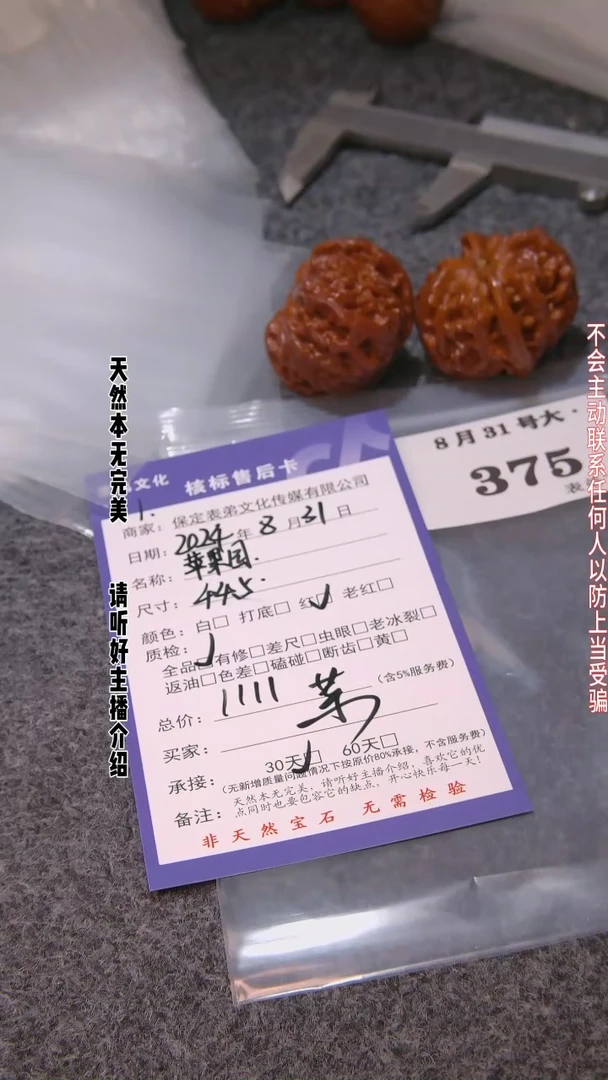 天然本无完美 请听好主播介绍
不会主动联系任何人以防上当受骗
8月31号大·
375
文化 核标售后卡
1.
商家：保定表弟文化传媒有限公司
日期：2024年8月31日
名称：苹果园.
尺寸：445.
颜色：白□ 打底□ 红□ 老红□
质检：
全品□有修□差尺□虫眼□老冰裂□
返油□色差□磕碰□断齿□黄□
总价：1111 (含5%服务费)
买家：
承接：30天□ 60天□
(无新增质量问题情况下按原价80%承接，不含服务费)
备注：天然本无完美，请听好主播介绍，喜欢它的优
点同时也要包容它的缺点，开心快乐每一天！
非天然宝石 无需检验